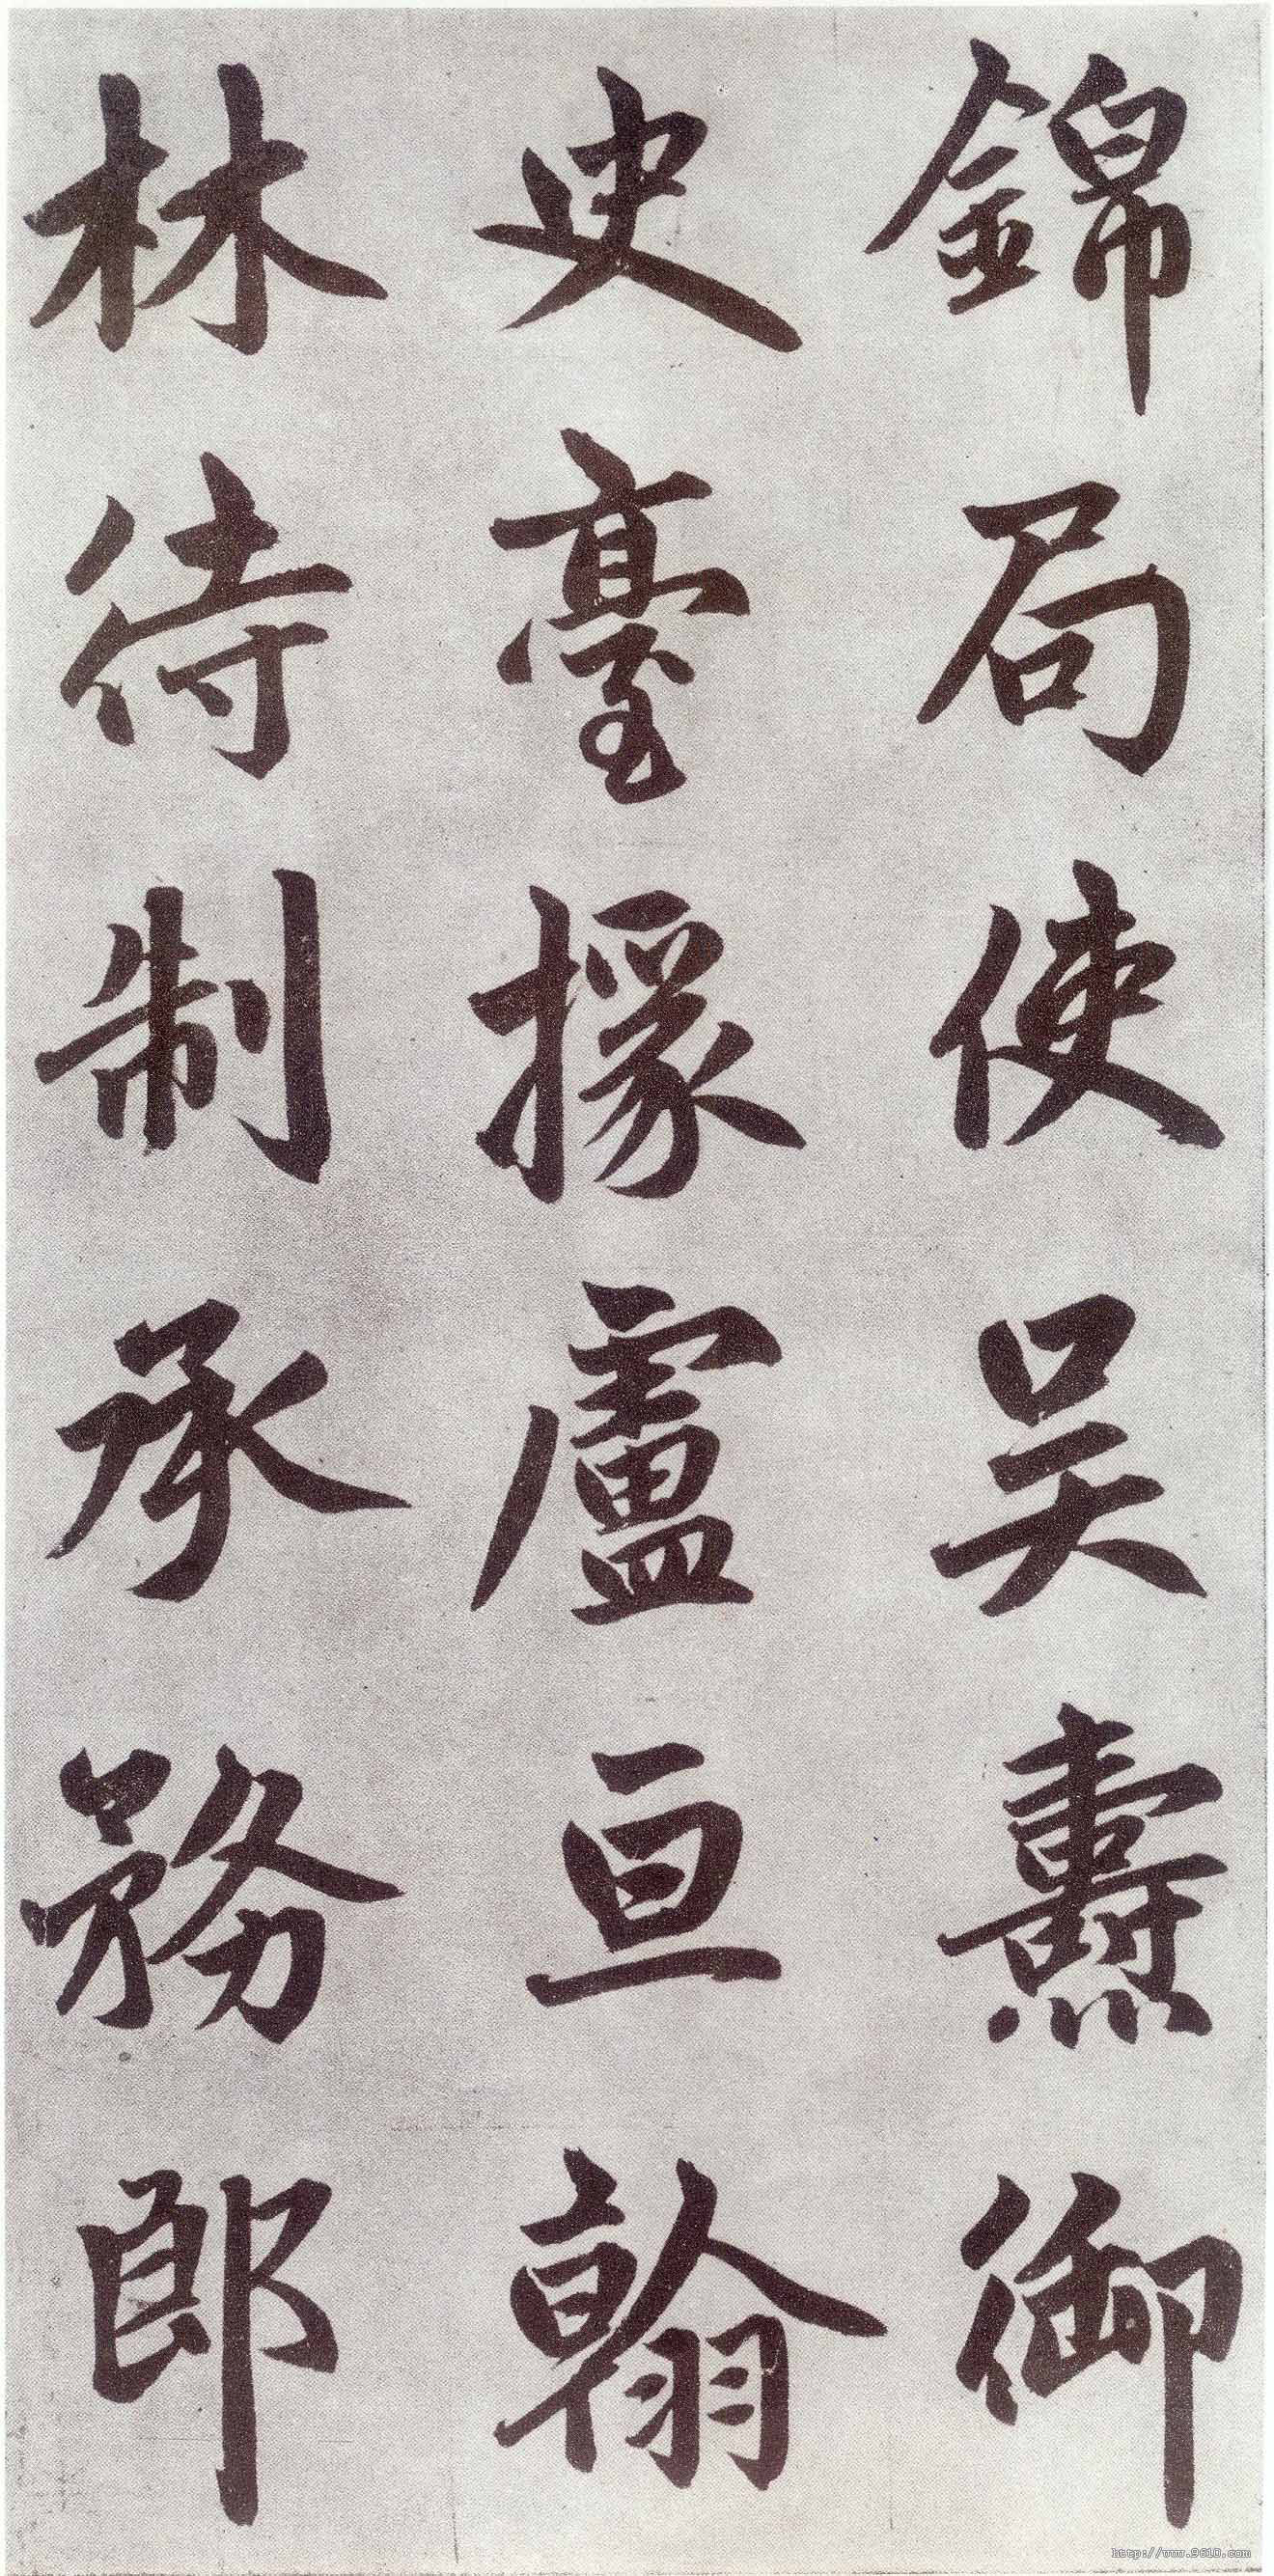 錦局使吴燾御
史臺掾盧亘翰
林待制承務郎
http://www.9610.com